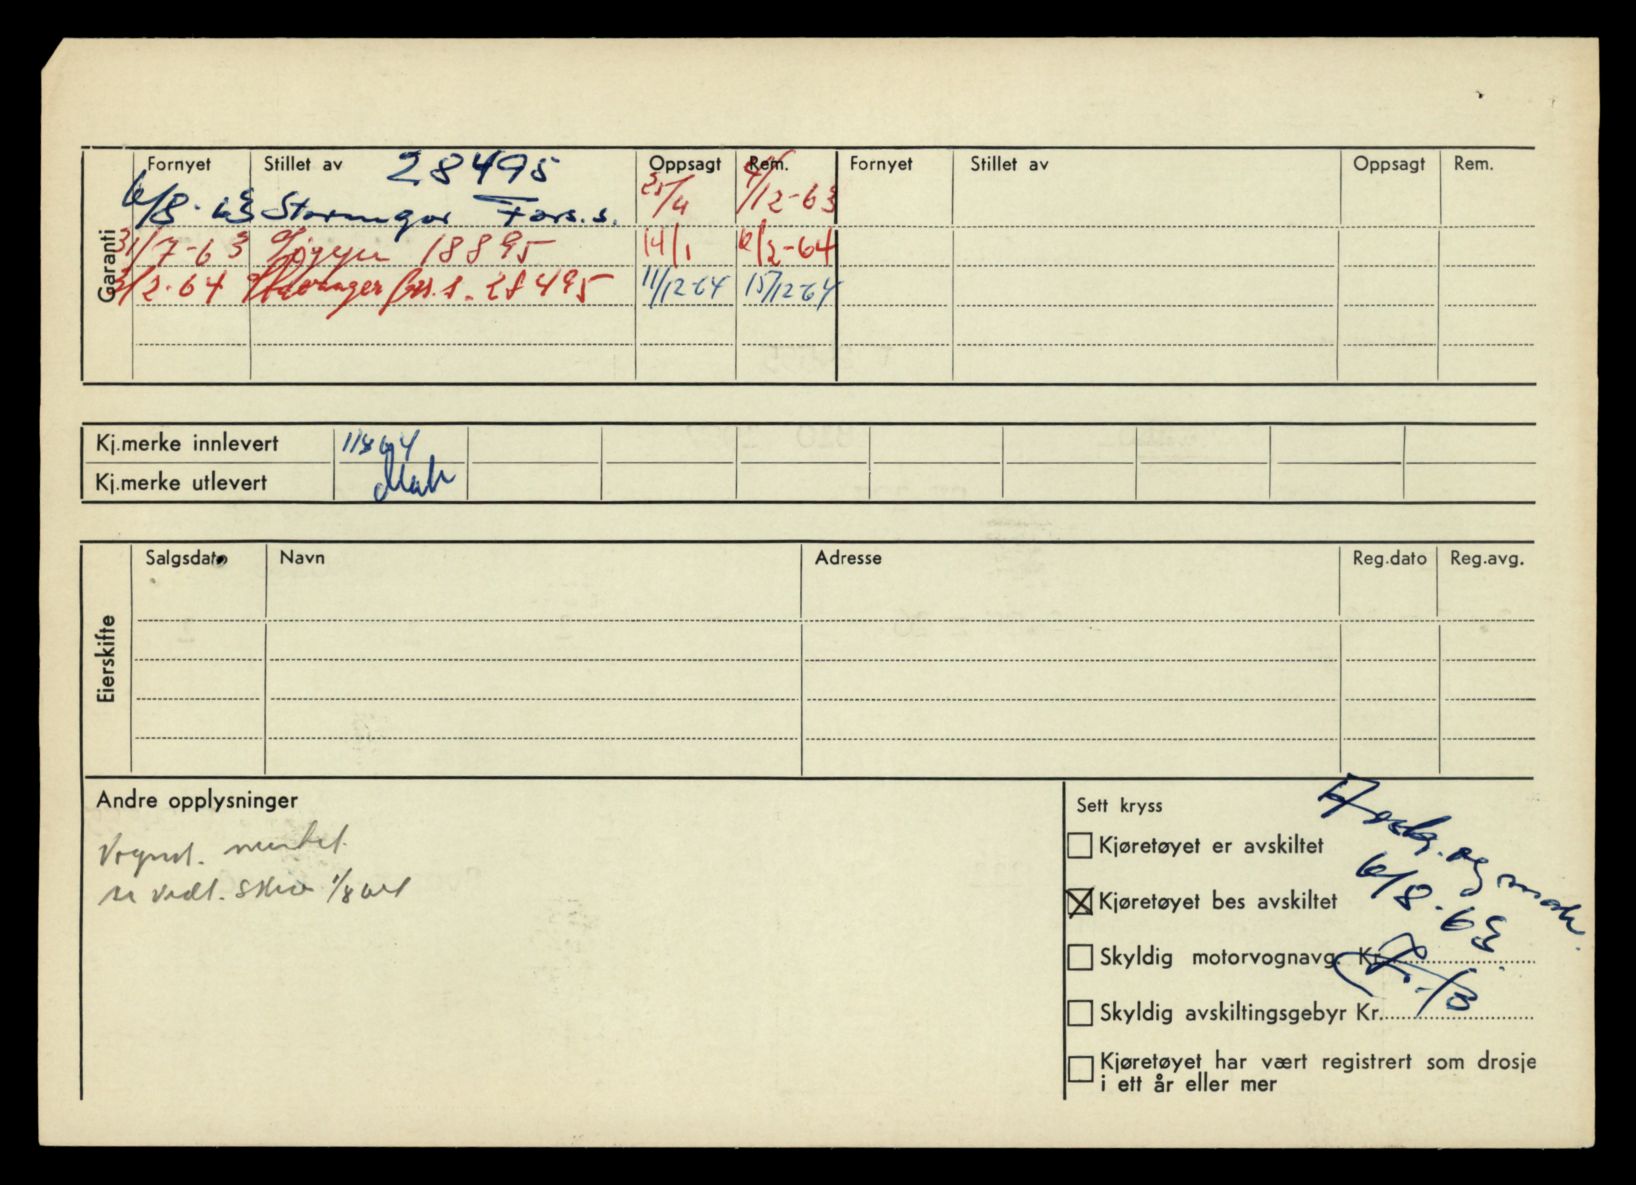 Garanti
Fornyet Stillet av 28495 Oppsagt Rem. Fornyet Stillet av Oppsagt Rem.
6/8-63 Stavanger Fors.s. /12-63
31/7-63 18895 14/1 6/2-64
3/2-64 Stavanger fors.s. 28495 11/12-64 15/12-64
Kj.merke innlevert 11864
Kj.merke utlevert
Eierskifte
Salgsdato Navn Adresse Reg.dato Reg.avg.
Andre opplysninger
Vognst.
Sett kryss
Kjøretøyet er avskiltet
Kjøretøyet bes avskiltet
6/8-63
Skyldig motorvognavg. Kr.
Skyldig avskiltingsgebyr Kr.
Kjøretøyet har vært registrert som drosje
i ett år eller mer